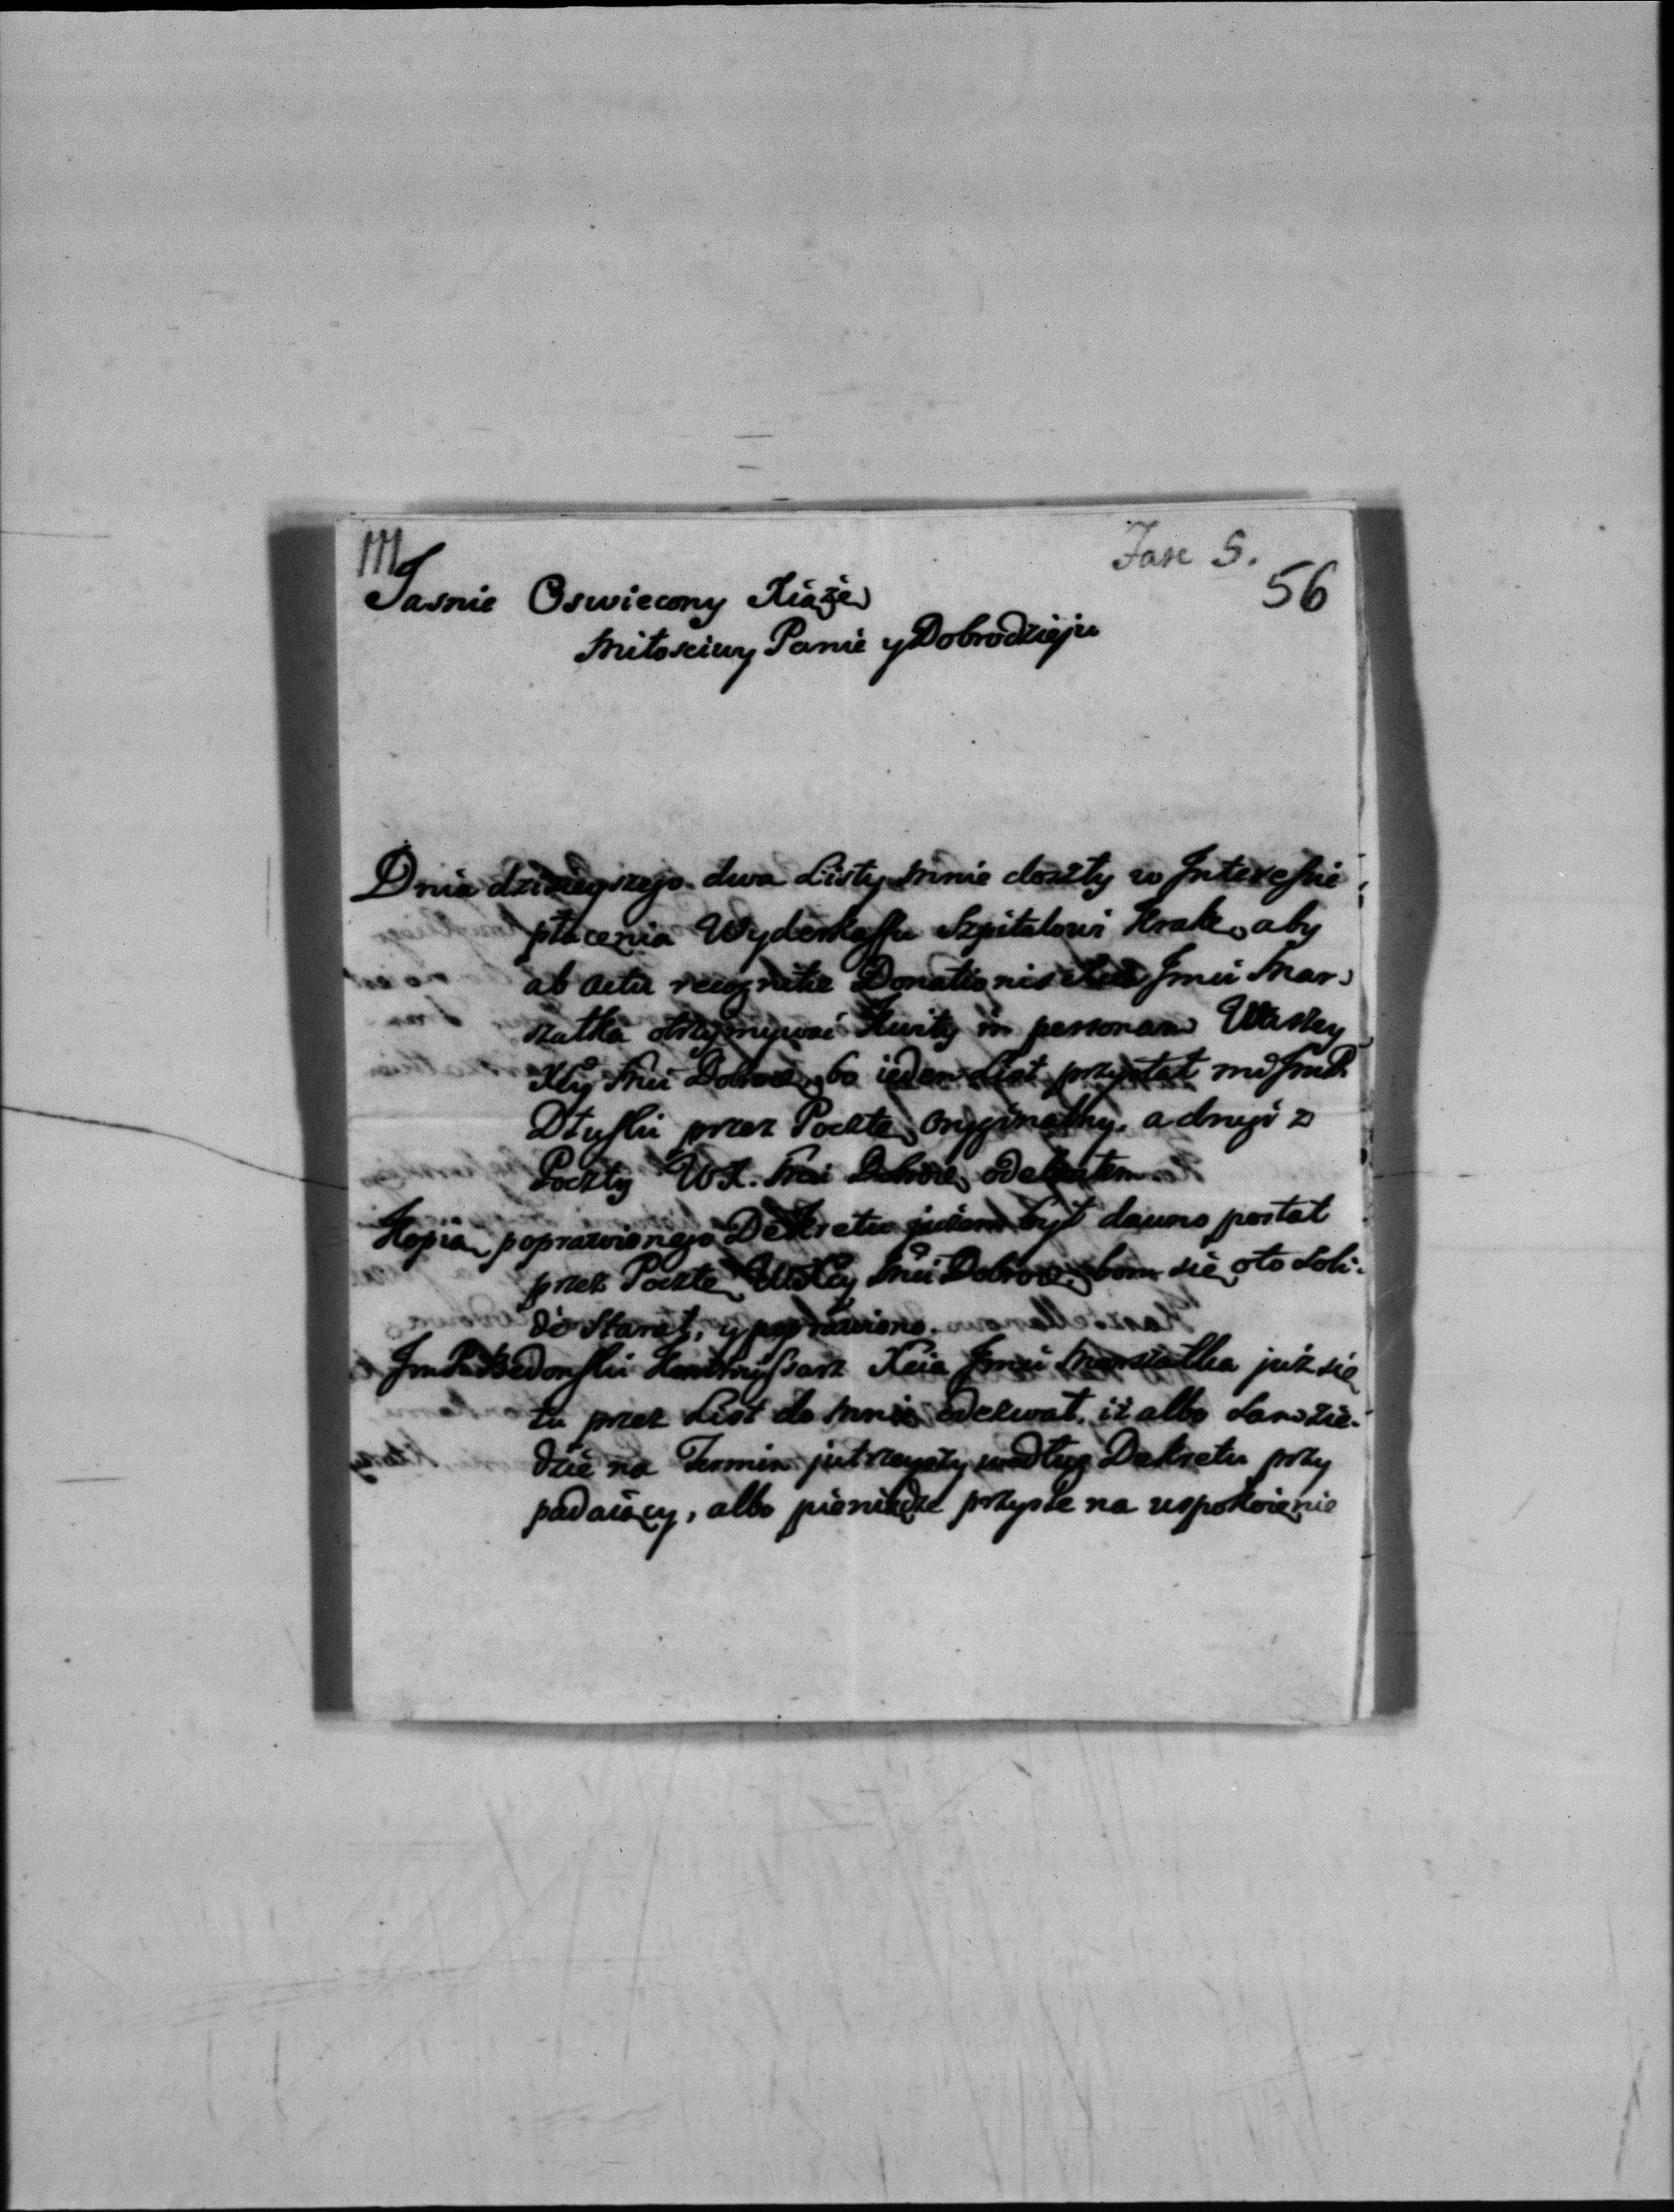 M
Fasc 5.
56
Jasnie Oswiecony Xiąże
Miłosciwy Panie y Dobrodzieju
Dnia dzisieyszego dwa Listy mnie doszły w Interessie
płacenia Wyderkaffu Szpitalowi Krak. aby
ab actu recognitæ Donationis Jmci Mar
szałka otrzymywać Kwity in personam Waszey
Xcy Mci Dobrod. bo ieden List przysłał mi JmP.
Dłuski przez Pocztę oryginalny, a drugi z
Poczty WX. Mci Dobrod. odebrałem.
Kopią poprawionego Dekretu jużem był dawno posłał
przez Pocztę WXcy Mci Dobrod. bom się o to Soli-
dè Starał, y poprawiono.
JmP. Kommissarz Xcia Jmci Marszałka już się
tu przez List do mnie odezwał, iż albo Sam zie-
dzie na Termin jutrzeyszy według Dekretu przy
padaiący, albo pieniądze przysle na uspokoienie